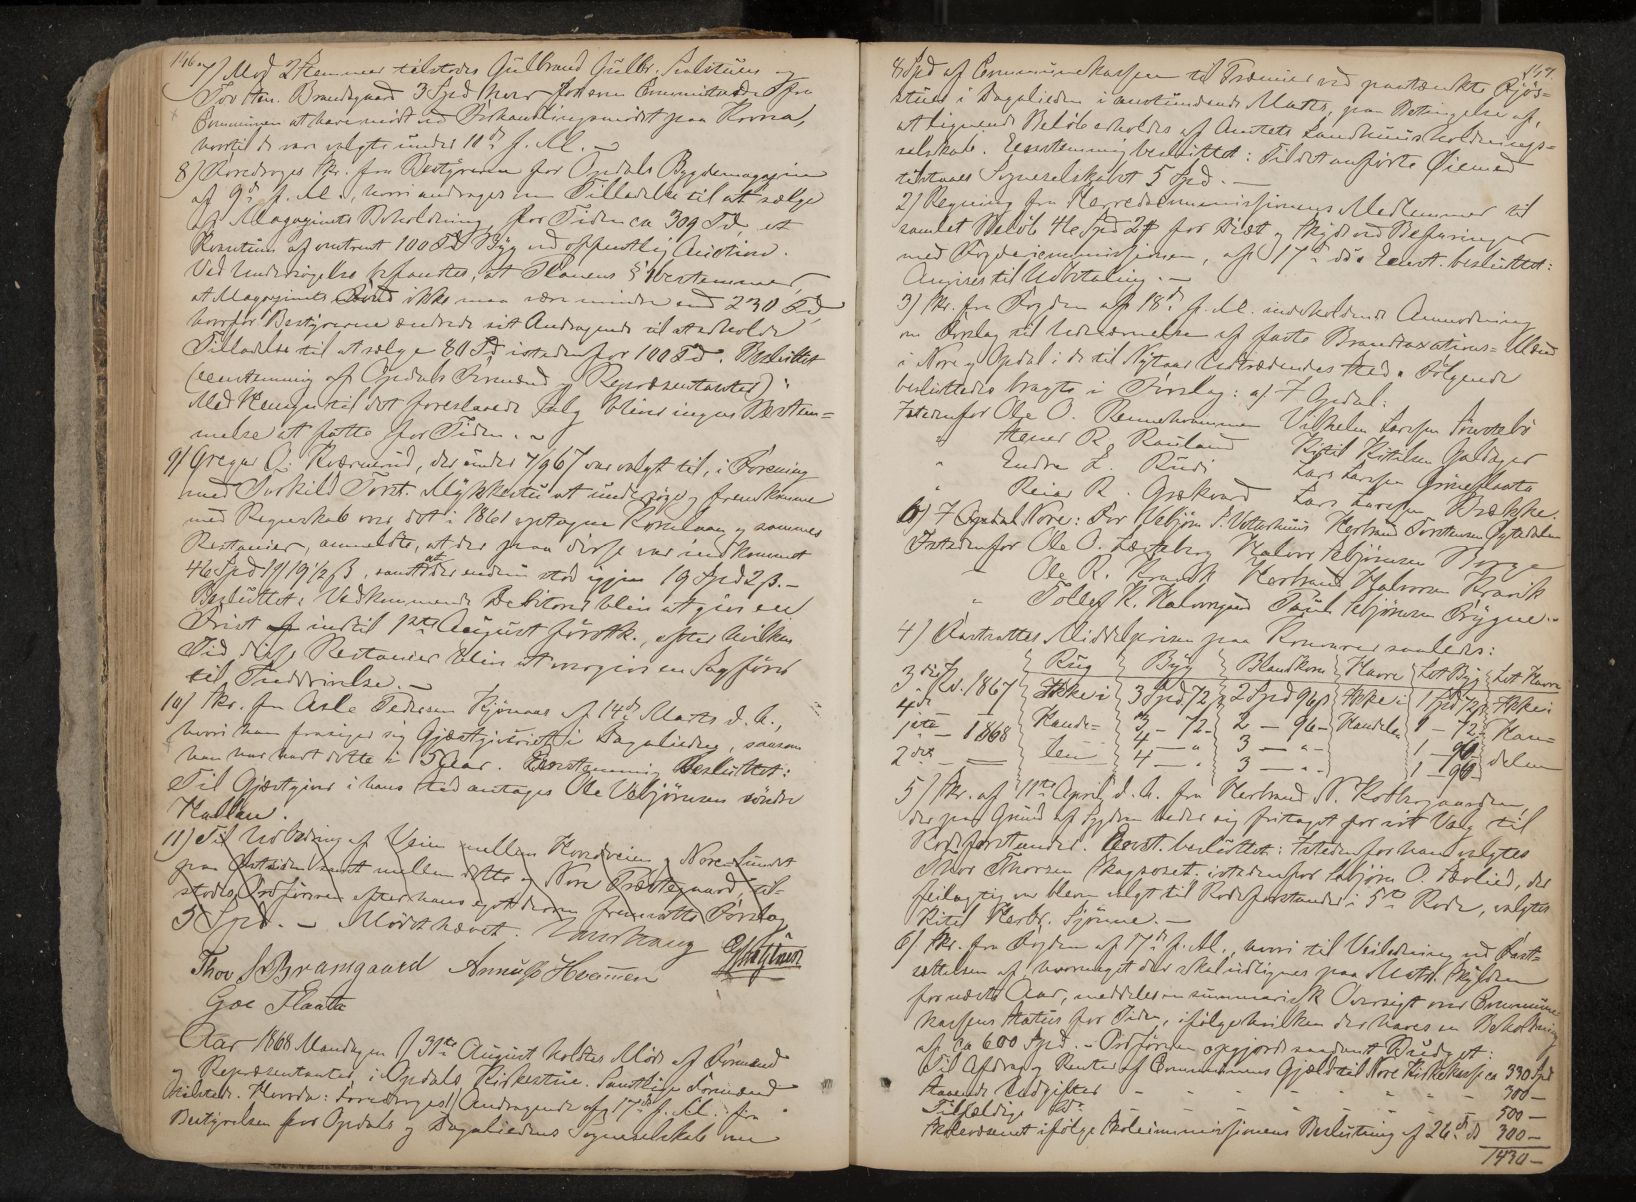 146.
7) Mod 2 Stemmer tilstodes Gulbrand Gulbr. og
Tov Hen. Brandsgaard 3 Spd hver for som fra
Communen at have mødt ved Forhandlingsmødet paa Korna,
hvortil de var valgte under 10de f. M. –
8) Foredroges Skr. fra Bestyrerne for Opdals Bygdemagazin
af 9de f. M., hvori andrages om Tilladelse til at sælge
af Magazinets Beholdning, for Tiden ca 309 Td, et
Kvantum af omtrent 100 Td Byg ved offentlig Auction.
Ved Undersøgelse befandtes, at Planens § 1 bestemmer,
at Magazinets ikke maa være mindre end 230 Td,
hvorfor Bestyrerne ændrede sit Andragende til at erholde
Tilladelse til at sælge 80 Td istedenfor 100 Td. Besluttet
(eenstemmig af Opdals Formænd og Repræsentanter):
Med Hensyn til det foreslaaede Salg bliver ingen Bestem=
melse at fatte for Tiden. –
9) Gregar O. Kværnerud, der under 7/9 67 var valgt til, i Forening
med Torkild Torst. Mykkestu at undersøge og fremkomme
med Regnskab over det i 1861 optagne Kornlaan og sammes
Restancer, anmeldte, at der paa disse var indkommet
46 Spd 1 ₰ 19½ β, samt at der endnu stod igjen 19 Spd 2 β. –
Besluttet: Vedkommende Debitorer bliver at give en
Frist indtil 1ste August førstk., efter hvilken
Tid disse Restancer bliver at overgive en Sagfører
til Inddrivelse. –
10) Skr. fra Asle Pedersen Kjønaas af 14de Marts d. A.,
hvori han frasiger sig Gjæstgiveriet i Dagalieden, saasom
han har havt dette i 5 Aar. Eenstemmig Besluttet:
Til Gjæstgiver i hans Sted antages Ole Vebjørnsen søndre
Hallan.
11) Til Udbedring af Veien mellem Hovedveien og Nore-Sundet
paa Østsiden samt mellem dette og Nore Præstegaard, til=
stodes Ordføreren efter hans eget derom fremsatte Forslag
5 Spd. – Mødet hævet.
Thov S. Bramgaard
Gae Flaata
Aar 1868 Mandagen d 31te August holdtes Møde af Formænd
og Repræsentanter i Opdals Kirkestue. Samtlige Formænd
tilstede. Herved: Foredroges 1) Andragende af 17de f. M. fra
Bestyrelsen for Opdals og Dagaliedens Sogneselskab om
147.
8 Spd af Communekassen til Præmier ved paatænkte Dyrs=
skue i Dagalieden i anstundende Marts, paa Betingelse af,
at lignende Beløb erholdes af Amtets Landhuusholdnings=
selskab. Eenstemmig besluttet: Til det anførte Øiemed
tilstaaes Sogneselskabet 5 Spd. –
2) Regning fra Herredscommissionens Medlemmer til
samlet Beløb 46 Spd 24 β for Diæt og Skyds ved Befaringer
med Fogdericommissionen, af 17de ds. Eenst. besluttet:
Anvises til Udbetaling. –
3) Skr. fra Fogden af 18de f. M. indeholdende Anmodning
om Forslag til Udnævnelse af faste Brandtaxations=Mænd
i Nore og Opdal i de til Nytaar Udtrædendes Sted. Følgende
besluttedes bragte i Forslag: a) I Opdal:
Istedenfor Ole O. Rennehvammen Vilhelm Larssen
" Hener R. Rauland Kittil Kittilsen Galdager
" Endre L. Rudi Lars Larssen Grøneflaata
" Reier R. Grækvard Lars Larssen Brække.
b) I Nore: For Vebjørn S. Herbrand Torstensen
Istedenfor Ole O. Halvor Vebjørnsen
" Ole R. Kravik Herbrand Halvorsen Kravik
" Tollef K. Halvorsgaard Paul Vebjørnsen Brygne. –
4) Ansattes Middelpriser paa Kornvarer saaledes:
Rug Byg Blandkorn Havre Let Byg Let Havre
3die Kv. 1867 Ikke i 3 Spd 72 2 Spd 96 β Ikke i 1 Spd 72 Ikke i
4de " – Hande= 3 – 72 – 2 – 96 – Handelen 1 – 72 – Han=
1ste " – 1868 len 4 – " 3 – " – 1 – 96 – delen
2det " – 4 – " 3 – " – 1 – 96 –
5) Skr. af 11te April d. A. fra Herbrand N. Kolbergaarden,
der paa Grund af Sygdom beder sig fritaget for sit Valg til
Rodeforstander. Eenst. besluttet: Istedenfor ham valgtes
Thor Thorsen Skagsoset. istedenfor Asbjørn O. Tveslied, der
feilagtig var bleven valgt til Rodeforstander i 5te Rode, valgtes
Kittil Herbr. Sjønne. –
6) Skr. fra Fogden af 17de f. M., hvori til Veiledning ved Fast=
sættelsen af, hvormeget der skal udlignes paa Matr. Skylden
for næste Aar, meddeles en summarisk Oversigt over Commune
kassens Status for Tiden, ifølge hvilken der haves en Beholdning
af ca 600 Spd. – Ordføreren opgjorde saadant Budget:
Til Afdrag og Renter af Communens Gjæld til Nore Kirkekasse ca 330 Spd
Staaende Udgifter - - - - - - 300 –
Tilfældige Do - - - - - - 500 –
Skolevæsenet ifølge Skolecommissionens Beslutning af 26de ds 300 –
1430 –